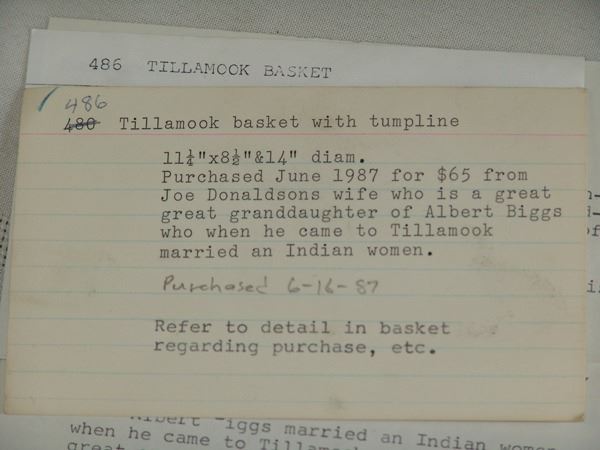 486 TILLAMOOK BASKET
486
480 Tillamook basket with tumpline
11¼"x8½"&14" diam.
Purchased June 1987 for $65 from
Joe Donaldsons wife who is a great
great granddaughter of Albert Biggs
who when he came to Tillamook
married an Indian women.
Purchased 6-16-87
Refer to detail in basket
regarding purchase, etc.
Albert Biggs married an Indian
when he came to
great